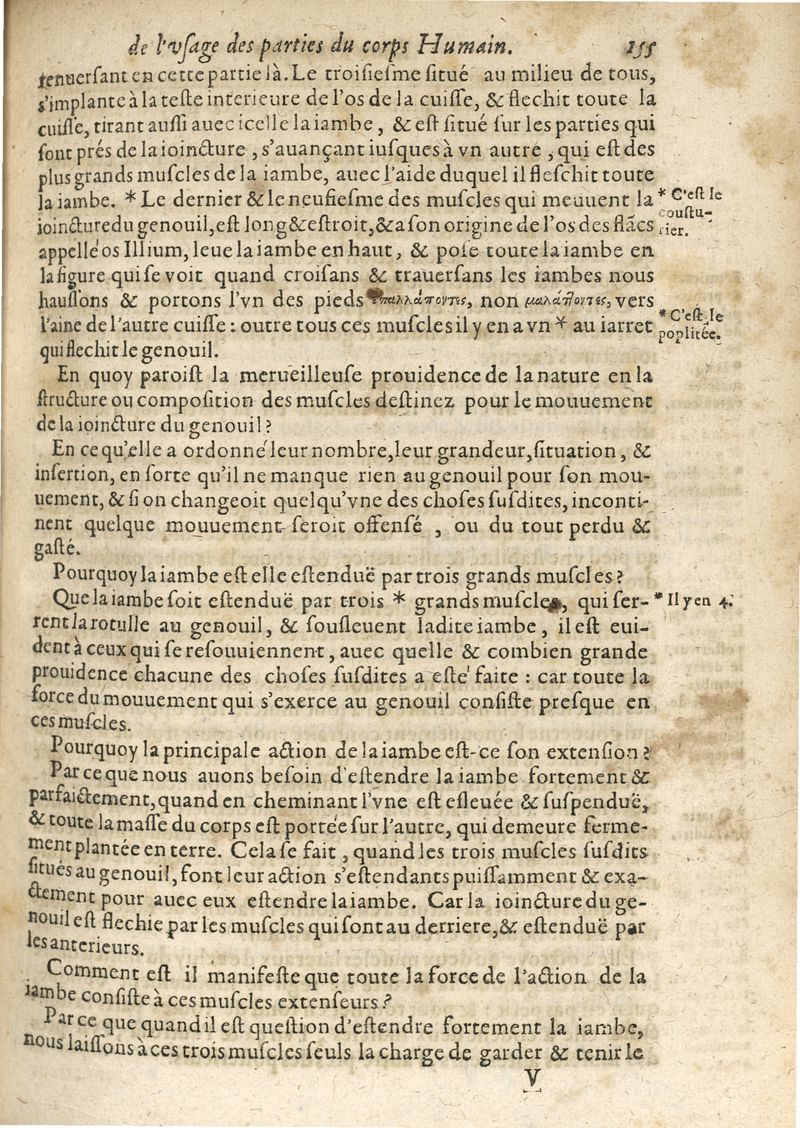 de l'vſage des parties du corps Humain. 155
renuerſant en cette partie là. Le troiſieſme ſitué au milieu de tous,
s'implante à la teſte interieure de l'os de la cuiſſe, & flechit toute la
cuiſſe, tirant auſſi auec icelle la iambe, & eſt ſitué ſur les parties qui
ſont prés de la ioincture, s'auançant iuſques à vn autre, qui eſt des
plus grands muſcles de la iambe, auec l'aide duquel il fleſchit toute
la iambe. * Le dernier & le neufieſme des muſcles qui meuuent la
* C'eſt le
couſtu-
rier.
ioincture du genouil, eſt long & eſtroit, & a ſon origine de l'os des flãcs
appellé os Illium, leue la iambe en haut, & poſe toute la iambe en
la figure qui ſe voit quand croiſans & trauerſans les iambes nous
hauſſons & portons l'vn des pieds non vers
l'aine de l'autre cuiſſe : outre tous ces muſcles il y en a vn * au iarret
* C'eſt le
poplitée.
qui flechit le genouil.
En quoy paroiſt la merueilleuſe prouidence de la nature en la
ſtructure ou compoſition des muſcles deſtinez pour le mouuement
de la ioincture du genouil?
En ce qu'elle a ordonné leur nombre, leur grandeur, ſituation, &
inſertion, en ſorte qu'il ne manque rien au genouil pour ſon mou-
uement, & ſi on changeoit quelqu'vne des choſes ſuſdites, inconti-
nent quelque mouuement ſeroit offenſé , ou du tout perdu &
gaſté.
Pourquoy la iambe eſt elle eſtenduë par trois grands muſcles?
Que la iambe ſoit eſtenduë par trois * grands muſcles, qui ſer-
* Il y en 4.
rent la rotulle au genouil, & ſouſleuent ladite iambe, il eſt eui-
dent à ceux qui ſe reſouuiennent, auec quelle & combien grande
prouidence chacune des choſes ſuſdites a eſté faite : car toute la
force du mouuement qui s'exerce au genouil conſiſte preſque en
ces muſcles.
Pourquoy la principale action de la iambe eſt-ce ſon extenſion?
Par ce que nous auons beſoin d'eſtendre la iambe fortement &
parfaictement, quand en cheminant l'vne eſt eſleuée & ſuſpenduë,
& toute la maſſe du corps eſt portée ſur l'autre, qui demeure ferme-
ment plantée en terre. Cela ſe fait, quand les trois muſcles ſuſdits
ſitués au genouil, font leur action s'eſtendants puiſſamment & exa-
ctement pour auec eux eſtendre la iambe. Car la ioincture du ge-
nouil eſt flechie par les muſcles qui ſont au derriere, & eſtenduë par
les anterieurs.
Comment eſt il manifeſte que toute la force de l'action de la
iambe conſiſte à ces muſcles extenſeurs?
Par ce que quand il eſt queſtion d'eſtendre fortement la iambe,
nous laiſſons à ces trois muſcles ſeuls la charge de garder & tenir le
V